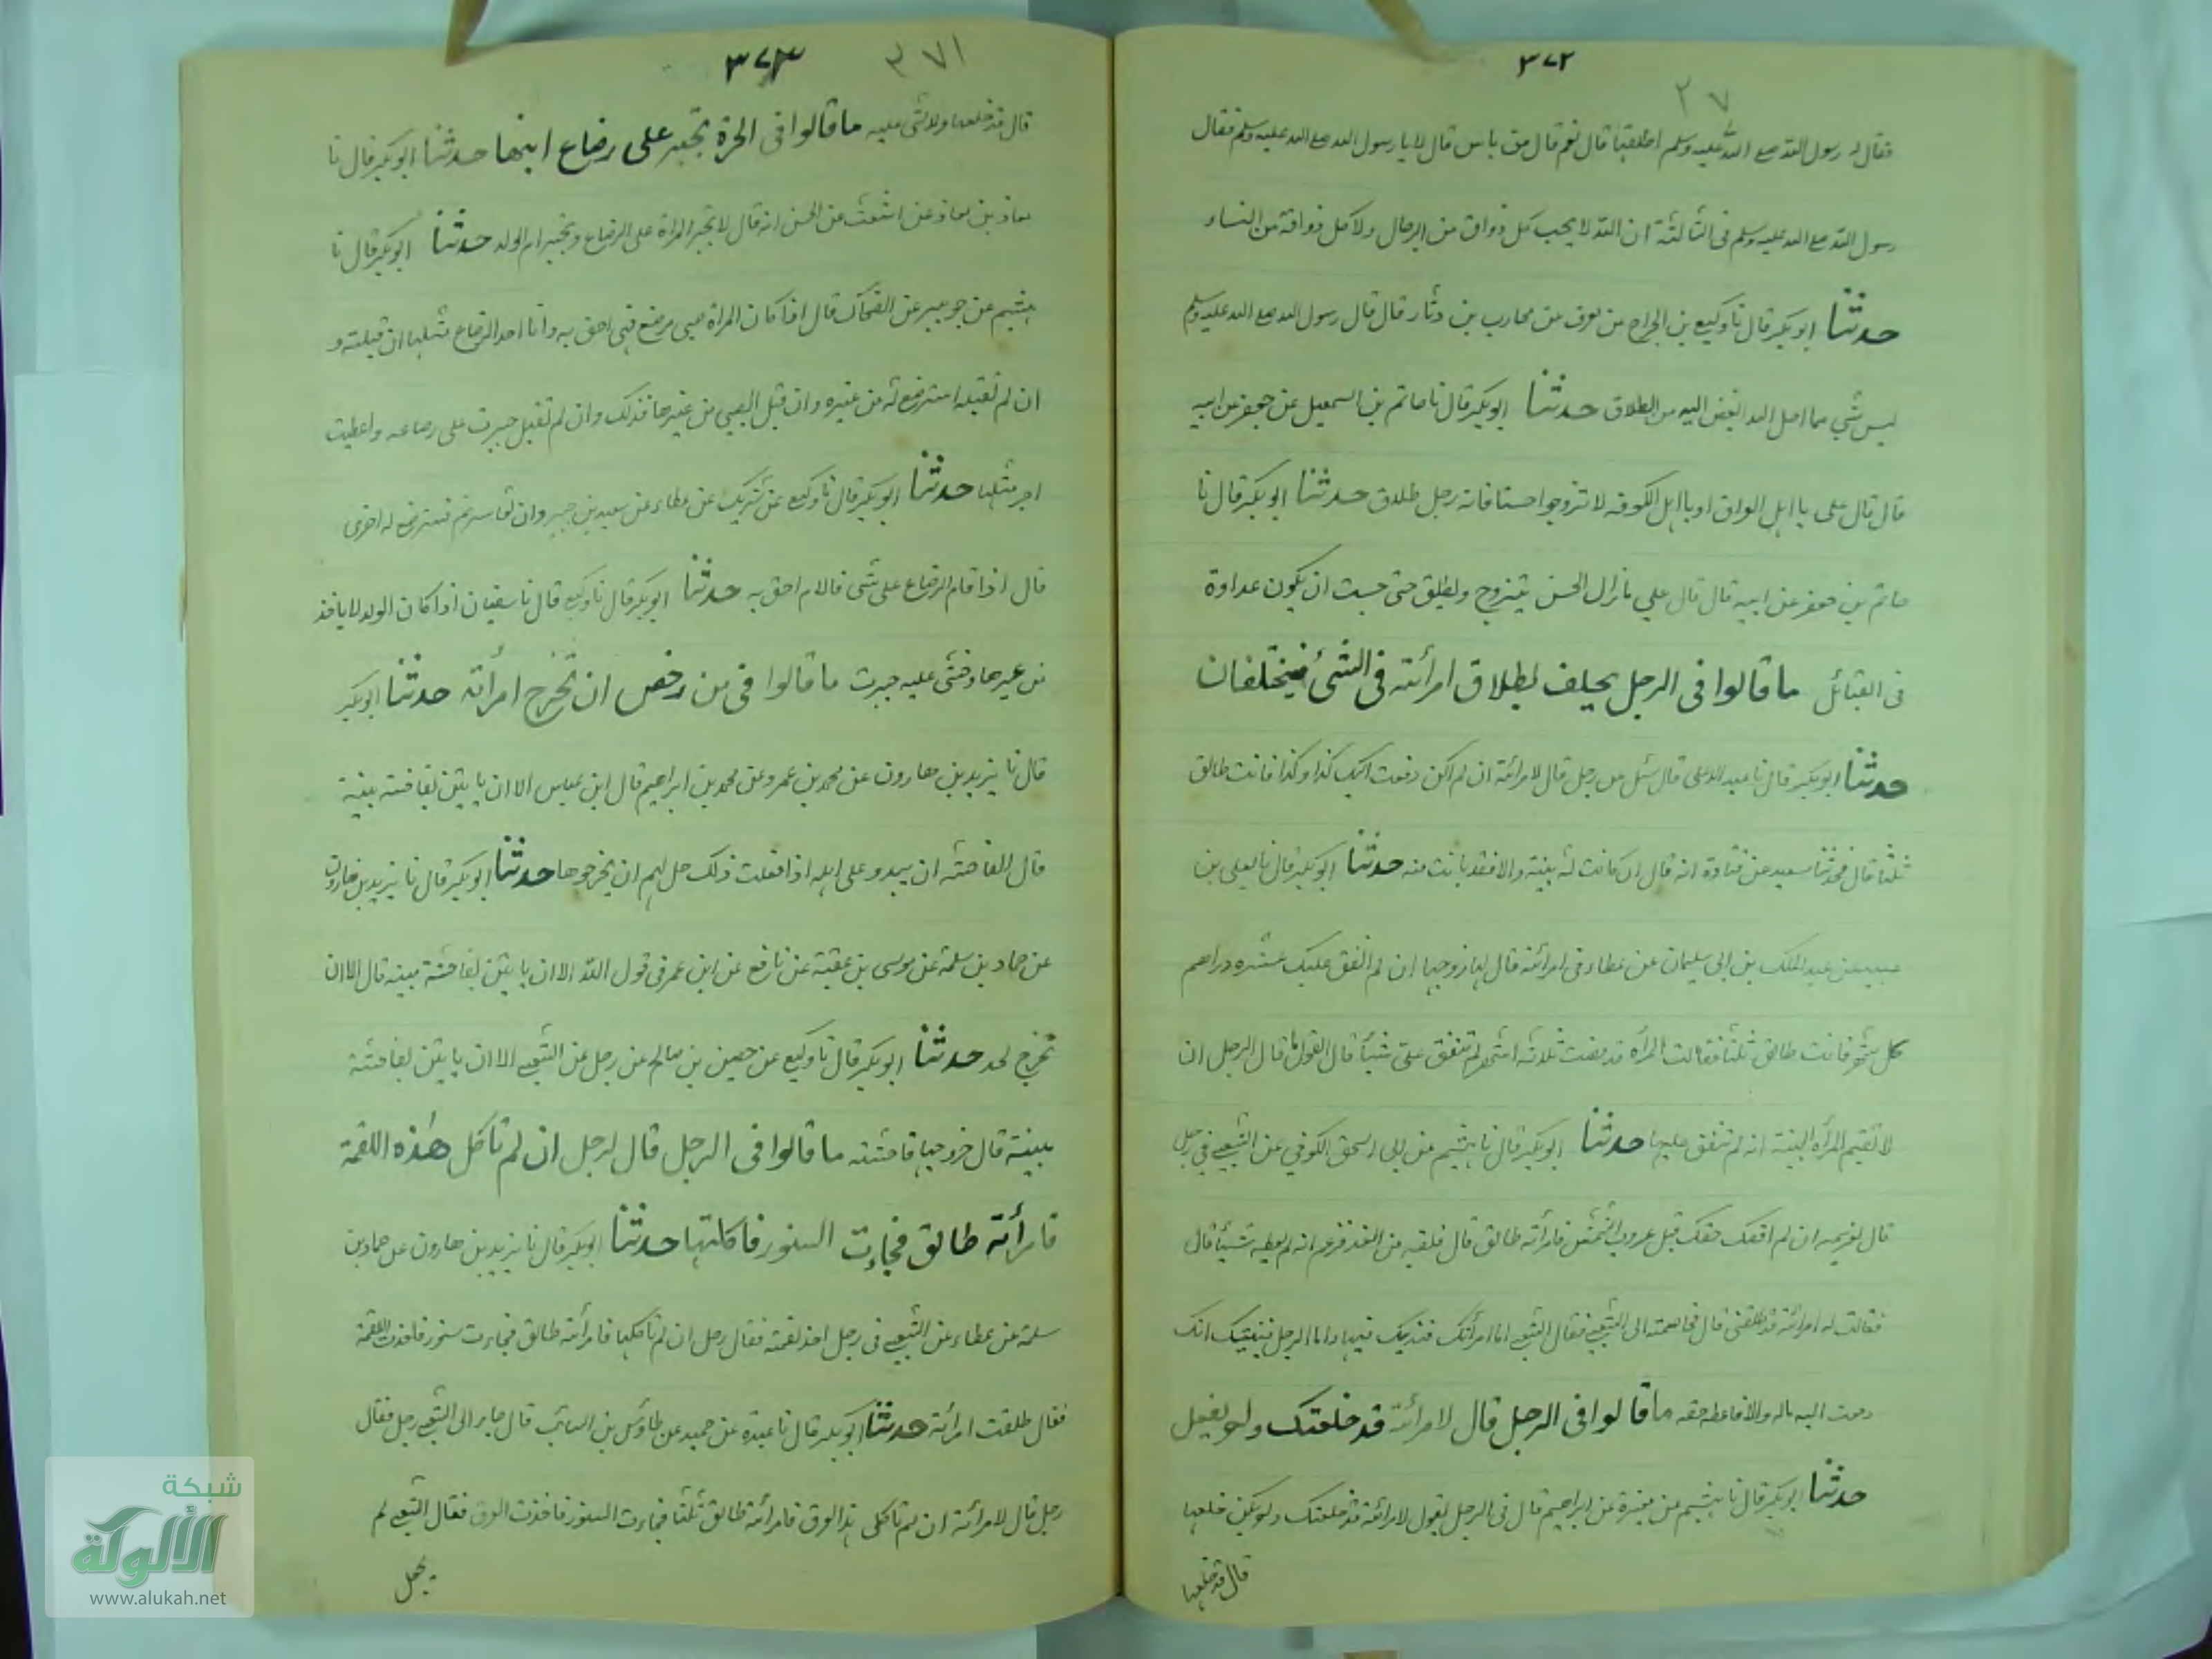 ٣٧٢
٢٧
فقال له رسول الله صلع الله عليه وسلم اطلقتها قال نعم قال من باس قال لا يا رسول الله صلع الله عليه وسلم فقال
رسول الله صلع الله عليه وسلم فى الثالثة ان الله لا يحب كل ذواق من الرجال ولا كل ذواقة من النساء
حدثنا ابو بكر قال نا وكيع بن الجراح عن معرف عن محارب بن دثار قال قال رسول الله صلع الله عليه وسلم
ليس شى مما احل الله ابغض اليه من الطلاق حدثنا ابو بكر قال نا حاتم بن اسمعيل عن جعفر عن ابيه
قال قال على يا اهل العراق او يا اهل الكوفه لا تزوجوا حسنا فانه رجل طلاق حدثنا ابو بكر قال نا
حاتم بن جعفر عن ابيه قال قال علي مازال الحسن يتزوج ويطلق حتى حسبت ان يكون عداوة
فى القبائل ما قالوا فى الرجل يحلف بطلاق امرأته فى الشئ فيختلفان
حدثنا ابو بكر قال نا عبد الاعلى قال سئل عن رجل قال لامرأته ان لم اكن دفعت اليك كذا وكذا فانت طالق
ثلثا قال فحدثنا سعيد عن قتادة انه قال ان كانت له بينة والا فقد بانت منه حدثنا ابو بكر قال نا يعلى بن
عبيد عن عبد الملك بن ابى سليمان عن عطاء فى امرأته قال لها زوجها ان لم انفق عليك عشره دراهم
كل شهر فانت طالق ثلثا فقالت المرأه قد مضت ثلاثه اشهر لم تنفق على شيئا قال القول ما قال الرجل ان
لا تقيم المرأه البينة انه لم ينفق عليها حدثنا ابو بكر قال نا هشيم عن ابى اسحق الكوفي عن الشعبى فى رجل
قال لغريمه ان لم اقضك حقك قبل غروب الشمس فامرأته طالق قال فلقيه من الغد فزعم انه لم يعطه شيئا قال
فقالت له امرأته قد طلقنى قال فخاصمته الى الشعبى فقال الشعبى اما امرأتك فندينك فيها واما الرجل فبينتك انك
دفعت اليه ماله والا فاعطه حقه ما قالوا فى الرجل قال لامرأته قد خلعتك ولم يفعل
حدثنا ابو بكر قال نا هشيم عن مغيرة عن ابراهيم قال فى الرجل يقول لامرأته قد خلعتك ولم يكن خلعها
قال قد خلعها
٣٧٣
٣٧١
قال قد خلعها ولا شى عليه ما قالوا فى الحرة تجبر على رضاع ابنها حدثنا ابو بكر قال نا
معاذ بن معاذ عن اشعث عن الحسن انه قال لا تجبر المرأة على الرضاع وتجبر ام الولد حدثنا ابو بكر قال نا
هشيم عن جويبر عن الضحاك قال اذا كان المرأة صبى مرضع فهى احق به وانا احد الرضاع مثلها ان قبلته و
ان لم تقبله استرضع له من غيره وان قبل الصبى من غيرها فذلك وان لم تقبل جبرت على رضاعه واعطيت
اجر مثلها حدثنا ابو بكر قال نا وكيع عن شريك عن عطاء عن سعيد بن جبير وان تعاسرتم فسترضع له اخرى
قال اذا قام الرضاع على شى فالام احق به حدثنا ابو بكر قال نا وكيع قال نا سفيان اذا كان الولد لا ياخذ
من غيرها وخشى عليه جبرت ما قالوا فى من رخص ان تخرج امرأته حدثنا ابو بكر
قال نا يزيد بن هارون عن محمد بن عمرو عن محمد بن ابراهيم قال ابن عباس الا ان ياتين بفاحشة مبينة
قال الفاحشه ان يبدو على اهله اذا فعلت ذلك حل لهم ان يخرجوها حدثنا ابو بكر قال نا يزيد بن هارون
عن حماد بن سلمة عن موسى بن عقبة عن نافع عن ابن عمر فى قول الله الا ان ياتين بفاحشة مبينه قال الا ان
تخرج لحد حدثنا ابو بكر قال نا وكيع عن حسين بن صالح عن رجل عن الشعبى الا ان ياتين بفاحشة
مبينة قال خروجها فاحشته ما قالوا فى الرجل قال لرجل ان لم تاكل هذه اللقمة
فامرأته طالق فجاءت السنور فاكلتها حدثنا ابو بكر قال نا يزيد بن هارون عن حماد بن
سلمة عن عطاء عن الشعبى فى رجل اخذ لقمة فقال رجل ان لم تاكلها فامرأته طالق فجاءت سنور فاخذت اللقمة
فقال طلقت امرأته حدثنا ابو بكر قال نا عبدة عن حميد عن طاؤس بن السائب قال جاء الى الشعبى رجل فقال
رجل قال لامرأته ان لم تاكلى هذا العرق فامرأته طالق ثلثا فجاءت السنور فاخذت العرق فقال الشعبى لم
يجعل
شبكة
الألوكة
www.alukah.net